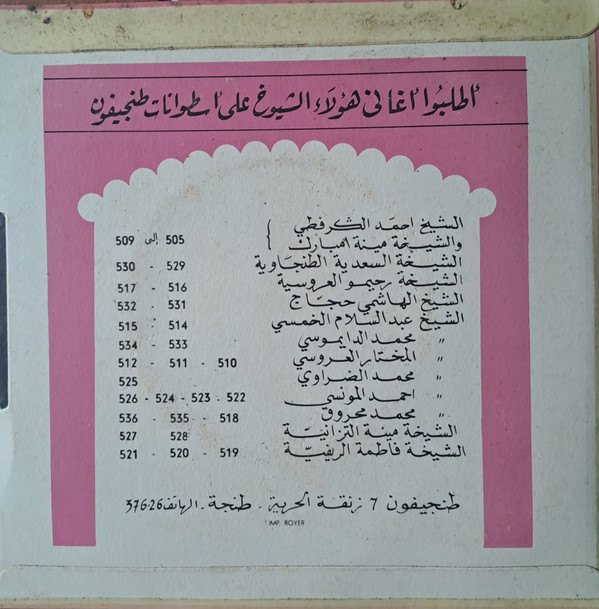 اطلبُوا اغاني هٰؤلاء الشيوخ على اسطوانات طنجيفون
الشيخ احمَد الكرفطي
والشيخة مينة امبارك } 505 إلى 509
الشيخة السعدية الطنجاوية 529 - 530
الشيخة رحيمو العروسية 516 - 517
الشيخ الهاشمي حجاج 531 - 532
الشيخ عبد السّلام الخمسي 514 - 515
" محمد الدايموسي 533 - 534
" المختار العروسي 510 - 511 - 512
" محمد الضراوي 525
" احمد المونسي 522 - 523 - 524 - 526
" محمد محروق 518 - 535 - 536
الشيخة مينة التزانيّة 528 527
الشيخة فاطمة الريفيّة 519 - 520 - 521
طنجيفون 7 زنقة الحرية - طنجة - الهاتف 37626
IMP. ROYER